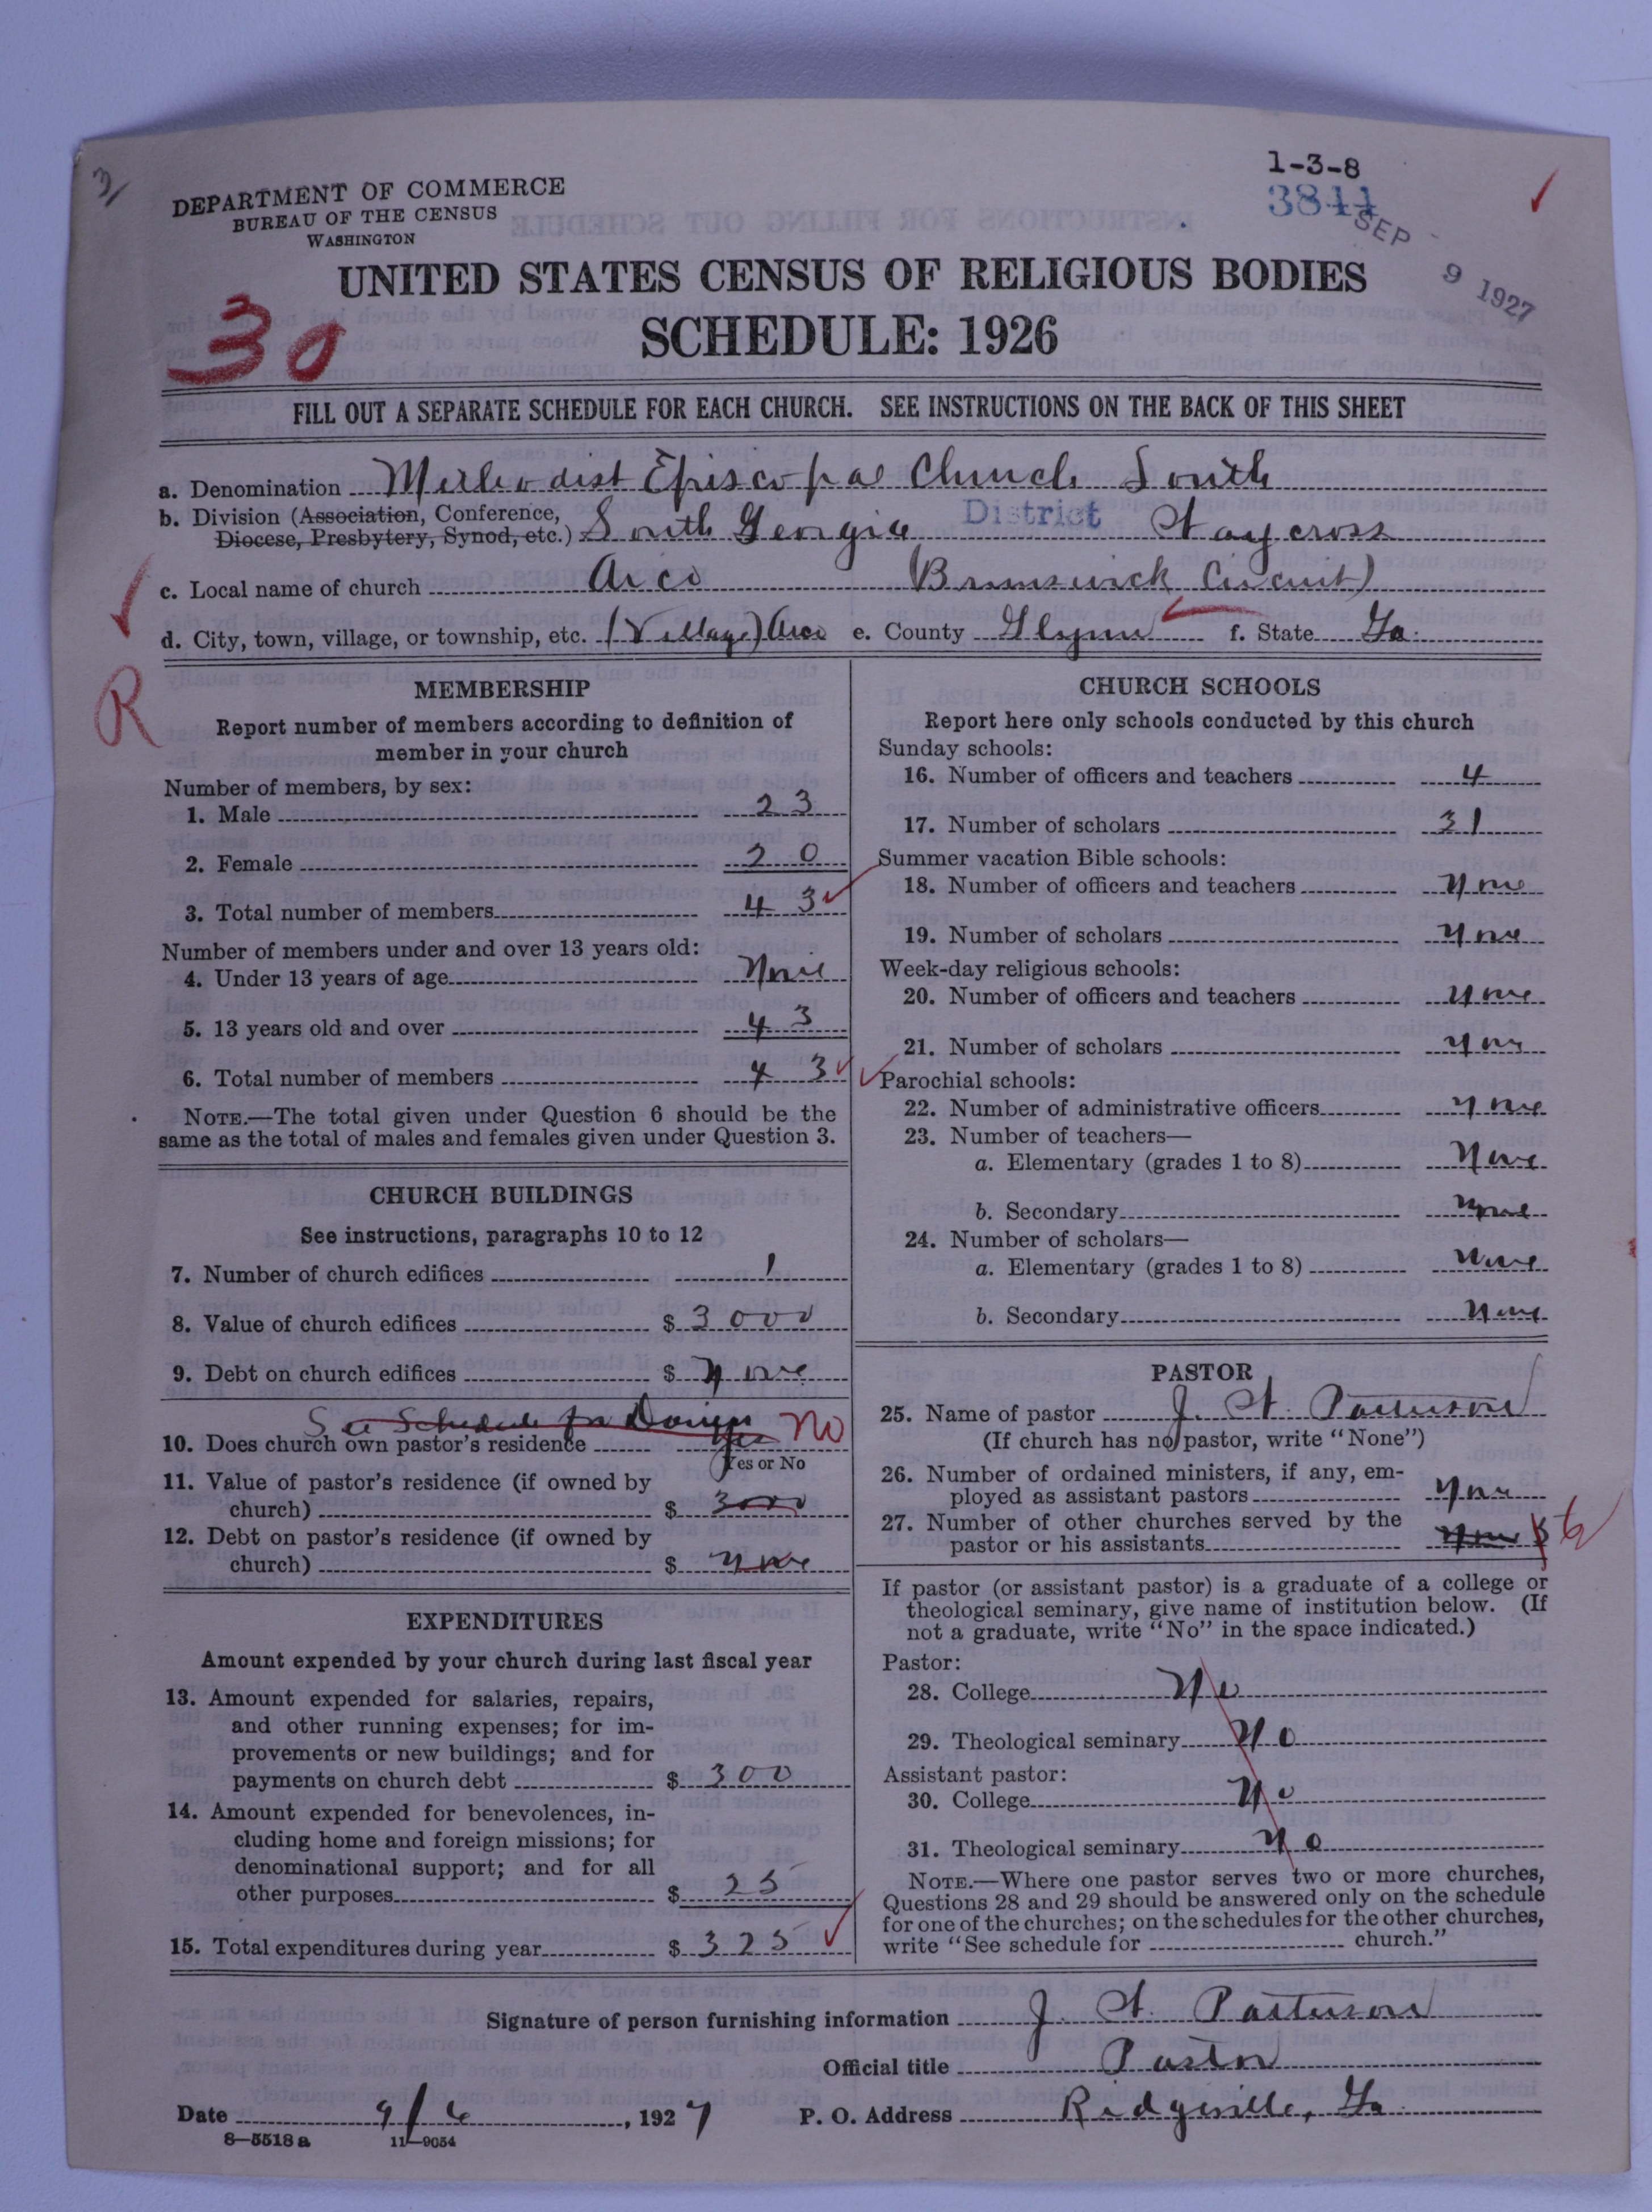 1-3-8
3844
SEP 9 1927
DEPARTMENT OF COMMERCE
BUREAU OF THE CENSUS
WASHINGTON
UNITED STATES CENSUS OF RELIGIOUS BODIES
30
SCHEDULE: 1926
FILL OUT A SEPARATE SCHEDULE FOR EACH CHURCH. SEE INSTRUCTIONS ON THE BACK OF THIS SHEET
a. Denomination Methodist Episcopal Church South
b. Division (Association, Conference, Diocese, Presbytery, Synod, etc.) South Georgia District Waycross
c. Local name of church Arco (Brunswick Circuit)
d. City, town, village, or township, etc. (Village) Arco e. County Glynn f. State Ga.
R
MEMBERSHIP
Report number of members according to definition of
member in your church
Number of members, by sex:
1. Male 23
2. Female 20
3. Total number of members 43
Number of members under and over 13 years old:
4. Under 13 years of age None
5. 13 years old and over 43
6. Total number of members 43
NOTE.—The total given under Question 6 should be the
same as the total of males and females given under Question 3.
CHURCH BUILDINGS
See instructions, paragraphs 10 to 12
7. Number of church edifices 1
8. Value of church edifices $ 3000
9. Debt on church edifices $ None
See Schedule for
10. Does church own pastor's residence Yes No
Yes or No
11. Value of pastor's residence (if owned by
church) $ 3000
12. Debt on pastor's residence (if owned by
church) $ None
EXPENDITURES
Amount expended by your church during last fiscal year
13. Amount expended for salaries, repairs,
and other running expenses; for im-
provements or new buildings; and for
payments on church debt $ 300
14. Amount expended for benevolences, in-
cluding home and foreign missions; for
denominational support; and for all
other purposes $ 25
15. Total expenditures during year $ 325
CHURCH SCHOOLS
Report here only schools conducted by this church
Sunday schools:
16. Number of officers and teachers 4
17. Number of scholars 31
Summer vacation Bible schools:
18. Number of officers and teachers None
19. Number of scholars None
Week-day religious schools:
20. Number of officers and teachers None
21. Number of scholars None
Parochial schools:
22. Number of administrative officers None
23. Number of teachers—
a. Elementary (grades 1 to 8) None
b. Secondary None
24. Number of scholars—
a. Elementary (grades 1 to 8) None
b. Secondary None
PASTOR
25. Name of pastor J. H. Patterson
(If church has no pastor, write "None")
26. Number of ordained ministers, if any, em-
ployed as assistant pastors None
27. Number of other churches served by the
pastor or his assistants None 6
If pastor (or assistant pastor) is a graduate of a college or
theological seminary, give name of institution below. (If
not a graduate, write "No" in the space indicated.)
Pastor:
28. College No
29. Theological seminary No
Assistant pastor:
30. College No
31. Theological seminary No
NOTE.—Where one pastor serves two or more churches,
Questions 28 and 29 should be answered only on the schedule
for one of the churches; on the schedules for the other churches,
write "See schedule for church."
Signature of person furnishing information J. H. Patterson
Official title Pastor
Date 9/6, 1927 P. O. Address Ridgeville, Ga.
8—5518 a 11—9054